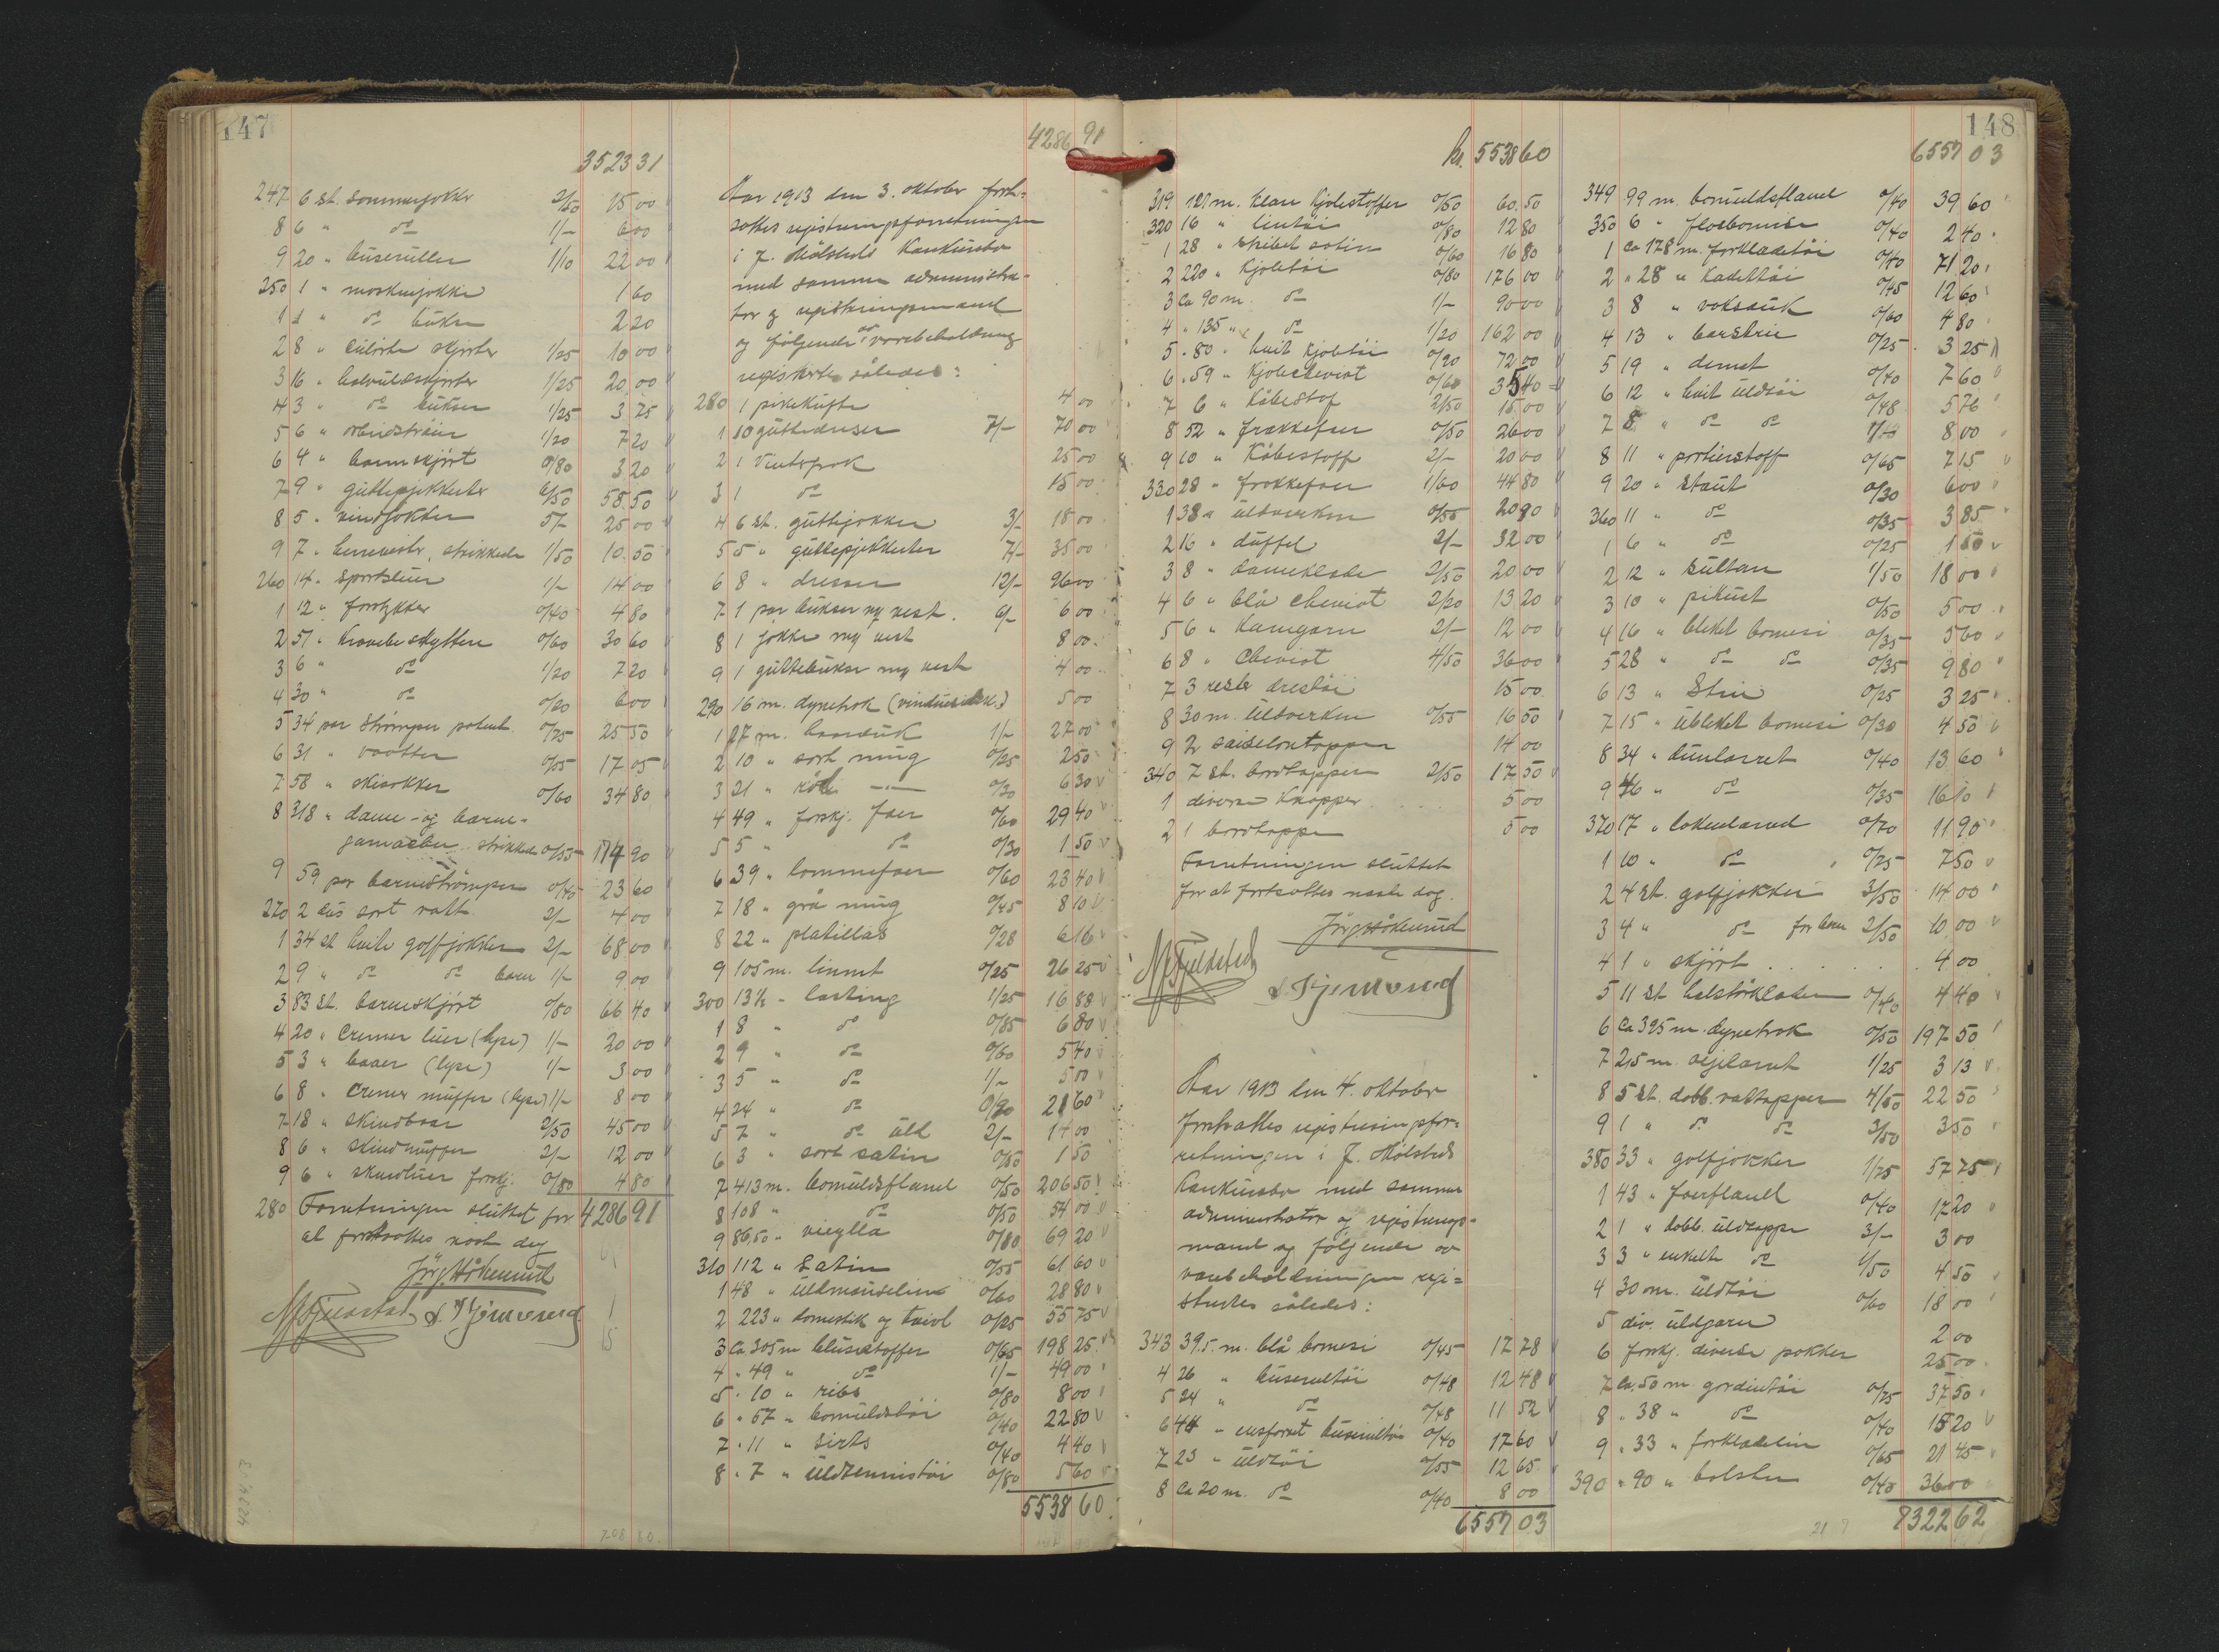 147
3523 31
247 6 st. sommerjokker 2/50 15 00
8 6 " do 1/- 6 00
9 20 " buseruller 1/10 22 00
250 1 " maskinjokke 1 60
1 1 " do bukse 2 20
2 8 " skjorter 1/25 10 00
3 16 " halvuldskjorter 1/25 20 00
4 3 " do bukser 1/25 3 75
5 6 " arbeidströier 1/20 7 20
6 4 " barneskjört 0/80 3 20
7 9 " guttepjekkerter 6/50 58 50
8 5 " vindjokker 5/- 25 00
9 7 " herreveste, strikkede 1/50 10 50
260 14 " sportsluer 1/- 14 00
1 12 " forstykker 0/40 4 80
2 51 " Kravebeskyttere 0/60 30 60
3 6 " do 1/20 7 20
4 30 " do 0/20 6 00
5 34 par Strömper patent 0/75 25 50
6 31 " vaatter 0/55 17 05
7 58 " skisokker 0/60 34 80
8 318 " dame- og barne-
gamascher strikkede 0/55 174 90
9 59 par barneströmper 0/40 23 60
270 2 dus sort vatt 2/- 4 00
1 34 st hvite golfjokker 2/- 68 00
2 9 " do do barn 1/- 9 00
3 83 st. barneskjört 0/80 66 40
4 20 " Cremer luer (lyse) 1/- 20 00
5 3 " boaer (lyse) 1/- 3 00
6 8 " Cremer muffer (lyse) 1/- 8 00
7 18 " skindboar 2/50 45 00
8 6 " skindmuffer 2/- 12 00
9 6 " skindluer forskj. 0/80 4 80
280 Forretningen sluttet for 4286 91
at fortsættes næste dag
Jörg. Håkenrud
4286 91
Aar 1913 den 3. oktober fort-
sattes registreringsforretningen
i J. Mölsteds Konkursbo
med samme administra-
tor og registreringsmand
og følgende av varebeholdning
registrertes således:
280 1 pikekåpe 4 00
1 10 guttedresser 7/- 70 00
2 1 Vinterfrak 25 00
3 1 do 15 00
4 6 st. guttejokker 3/- 18 00
5 5 " guttepjekkerter 7/- 35 00
6 8 " dresser 12/- 96 00
7 1 par bukser og vest 6/- 6 00
8 1 jokke og vest 8 00
9 1 guttebukse og vest 4 00
290 16 m. dynetrek 5 00
1 27 m. 1/- 27 00
2 10 " sort ming 0/25 2 50
3 21 " röd -"- 0/30 6 30
4 49 " forskj. foer 0/60 29 40
5 5 " do 0/30 1 50
6 39 " lommefoer 0/60 23 40
7 18 " grå ming 0/45 8 10
8 22 " platillas 0/28 6 16
9 105 m. linnet 0/25 26 25
300 13 1/2 - lasting 1/25 16 88
1 8 " do 0/85 6 80
2 9 " do 0/60 5 40
3 5 " do 1/- 5 00
4 24 " do 0/90 21 60
5 7 " do uld 2/- 14 00
6 3 " sort satin 0/50 1 50
7 413 m. bomuldsflanel 0/50 206 50
8 108 " do 0/50 54 00
9 86,50 " vieylla 0/80 69 20
310 112 " Satin 0/55 61 60
1 48 " uldmouselin 0/60 28 80
2 223 " domestik og tvivl 0/25 55 75
3 Ca 305 m blusestoffer 0/65 198 25
4 " 49 " do 1/- 49 00
5 " 10 " ribs 0/80 8 00
6 " 57 " bomuldstöi 0/40 22 80
7 " 11 " sirts 0/40 4 40
8 " 7 " uldtennistöi 0/80 5 60
5538 60
kr. 5538 60
319 121 m. klare kjolestoffer 0/50 60 50
320 16 " lintöi 0/80 12 80
1 28 " satin 0/60 16 80
2 220 " kjoletöi 0/80 176 00
3 Ca 90 m. do 1/- 90 00
4 " 135 " do 1/20 162 00
5 " 80 " hvit kjoletöi 0/90 72 00
6 " 59 " kjolecheviot 0/60 35 40
7 6 " Kåbestof 2/50 15 00
8 52 " frakkefoer 0/50 26 00
9 10 " Kåbestoff 2/- 20 00
330 28 " frakkefoer 1/60 44 80
1 38 " uldverken 0/55 20 90
2 16 " düffel 2/- 32 00
3 8 " dameklæde 2/50 20 00
4 6 " blå cheviot 2/20 13 20
5 6 " Kamgarn 2/- 12 00
6 8 " Cheviot 4/50 36 00
7 3 rester drestöi 15 00
8 30 m. uldverken 0/55 16 50
9 2 14 00
340 7 st. bordtæpper 2/50 17 50
1 diverse Knapper 5 00
2 1 bordtæppe 5 00
Forretningen sluttet
for at fortsættes næste dag.
Jörg Håkenrud
Aar 1913 den 4. oktober
fortsattes registreringsfor-
retningen i J. Mölsteds
Konkursbo med samme
administrator og registrerings-
mand og följende av
varebeholdningen regi-
strertes således:
343 39.5 m. blå bomesi 0/45 17 78
4 26 " buserultöi 0/48 12 48
5 24 " do 0/48 11 52
6 44 " ensfarvet buserultöi 0/40 17 60
7 23 " uldtöi 0/55 12 65
8 Ca 20 m. do 0/40 8 00
6557 03
148
6557 03
349 99 m. bomuldsflanel 0/40 39 60
350 6 " floebomesi 0/40 2 40
1 Ca 178 m. forklædetöi 0/40 71 20
2 " 28 " Kadettöi 0/45 12 60
3 8 " voksduk 0/60 4 80
4 13 " 0/25 3 25
5 19 " demet 0/40 7 60
6 12 " hvit uldtöi 0/48 5 76
7 8 " do do 1/- 8 00
8 11 " portierstoff 0/65 7 15
9 20 " staut 0/30 6 00
360 11 " do 0/35 3 85
1 6 " do 0/25 1 50
2 12 " sultan 1/50 18 00
3 10 " pikust 0/50 5 00
4 16 " bleket bomesi 0/35 5 60
5 28 " do do 0/35 9 80
6 13 " Strie 0/25 3 25
7 15 " ubleket bomesi 0/30 4 50
8 34 " dunlærret 0/40 13 60
9 46 " do 0/35 16 10
370 17 " lakenlærred 0/70 11 90
1 10 " do 0/75 7 50
2 4 st. golfjokker 3/50 14 00
3 4 " do for barn 2/50 10 00
4 1 " skjört 4 00
5 11 st halstörklæder 0/40 4 40
6 Ca 395 m. dynetrek 0/50 197 50
7 2,5 m. seillærret 1/25 3 13
8 5 st. dobb. vattæpper 4/50 22 50
9 1 " do do 3/50 3 50
380 33 " golfjokker 1/75 57 75
1 43 " foerflanell 0/40 17 20
2 1 " dobb. uldtæppe 3/- 3 00
3 3 " enkelte do 1/50 4 50
4 30 m. uldtöi 0/60 18 00
5 div. uldgarn 2 00
6 forskj. diverse pakker 25 00
7 Ca. 50 m. gardintöi 0/75 37 50
8 " 38 " do 0/40 15 20
9 " 33 " forklædelin 0/65 21 45
390 " 90 " bolster 0/40 36 00
7322 62